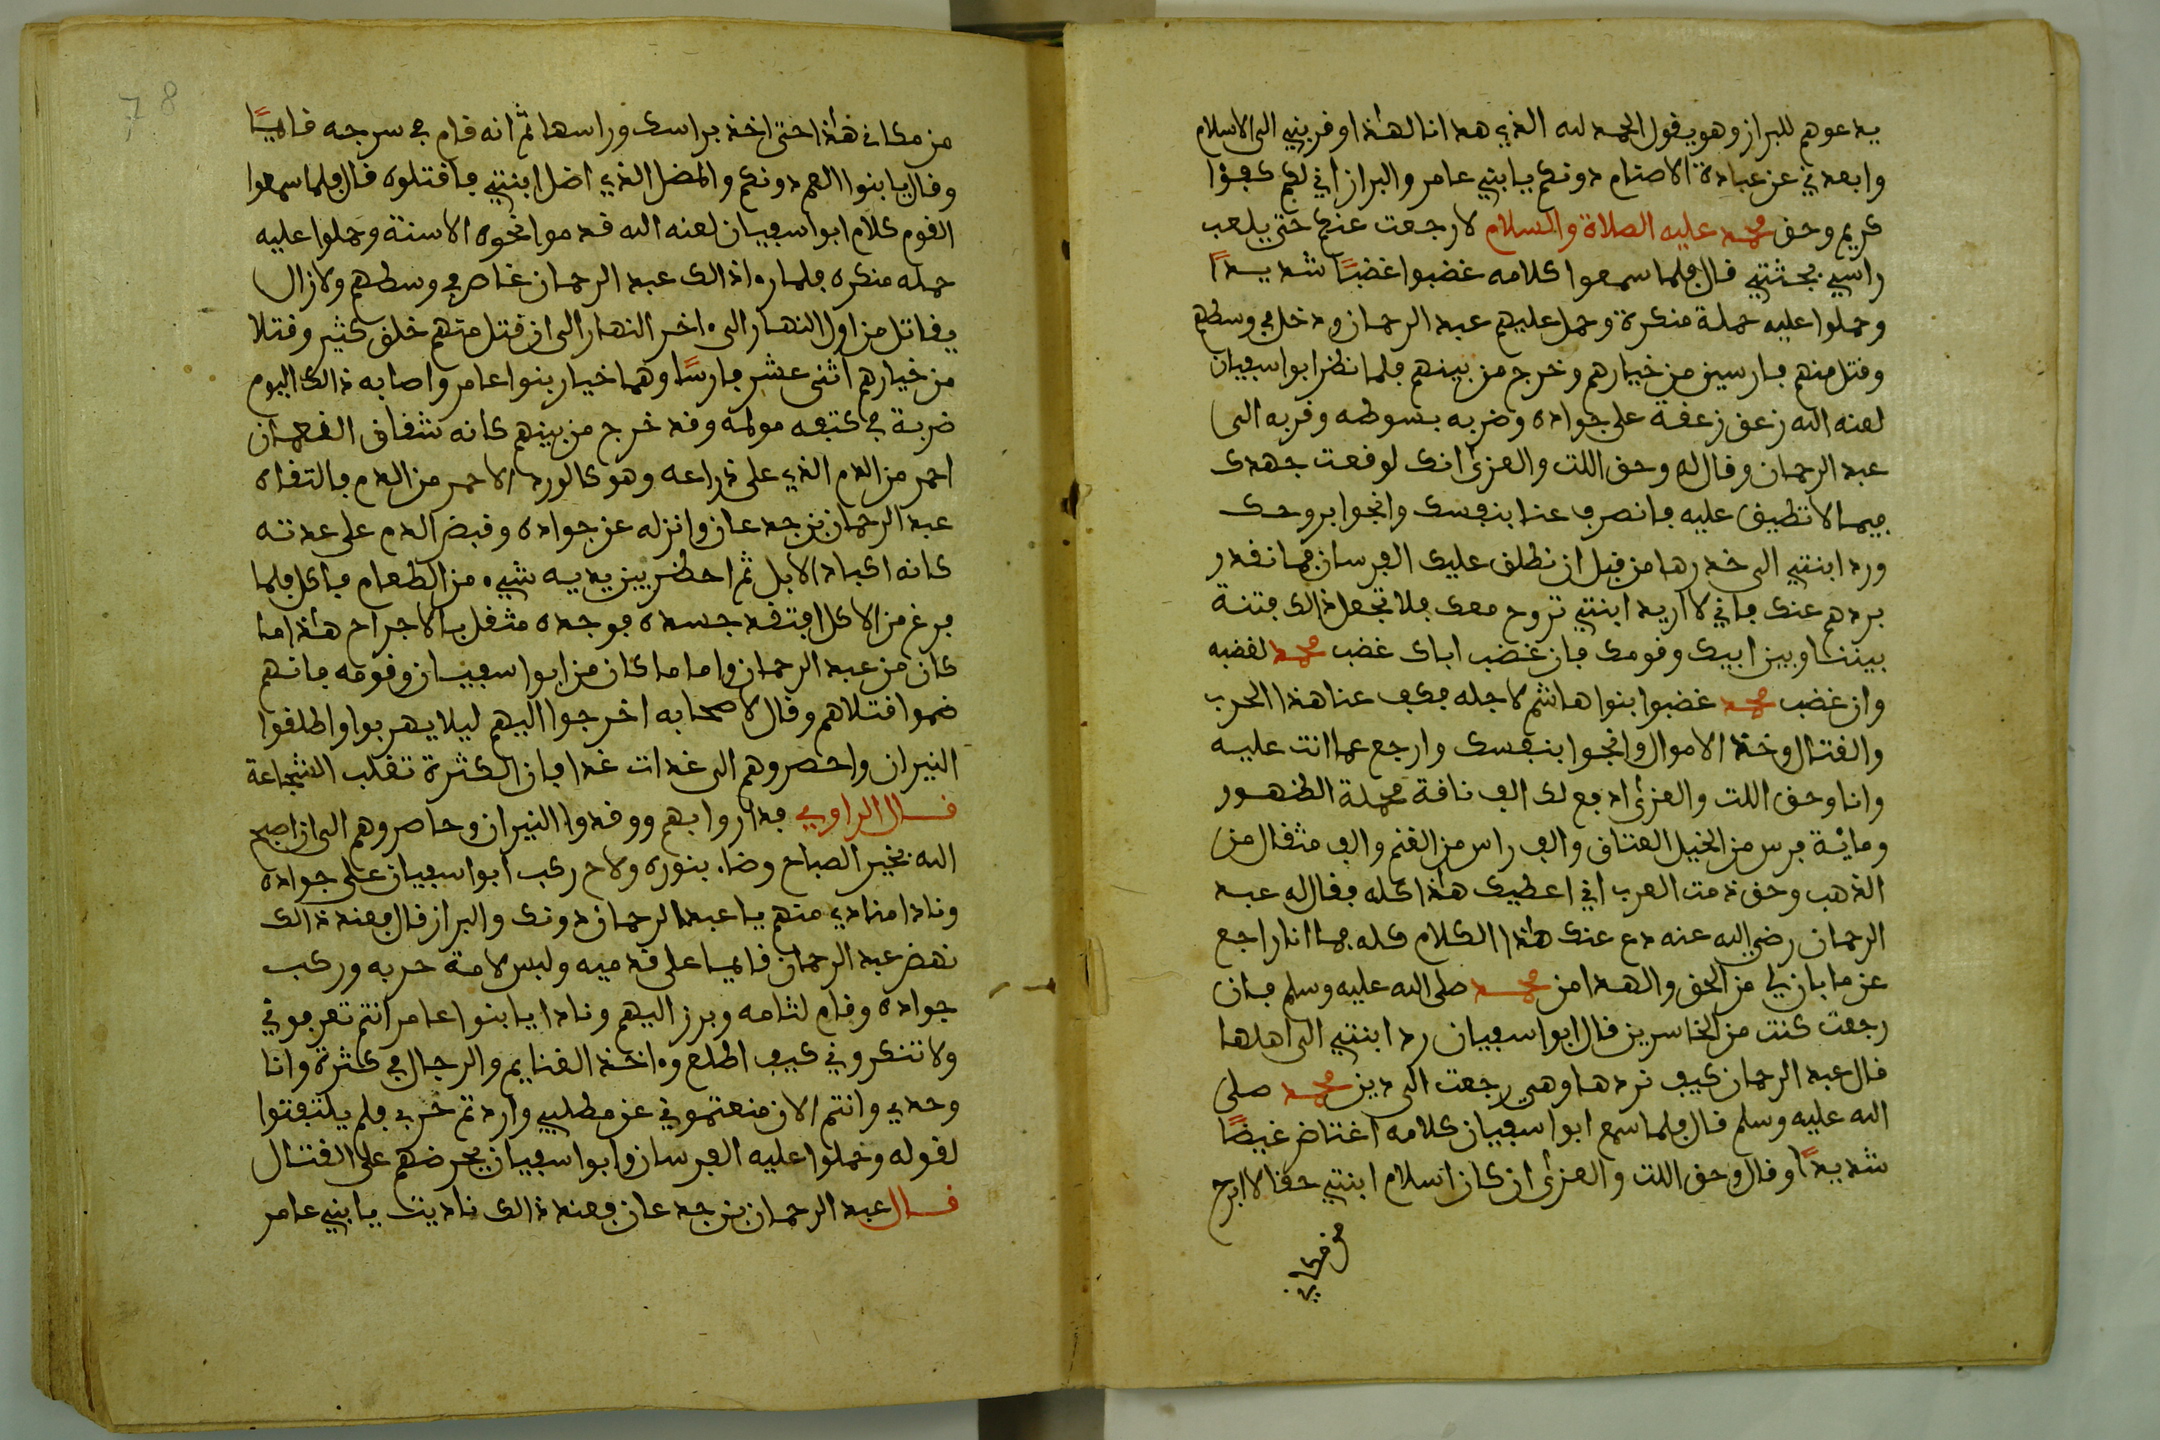 يدعوهم للبراز وهو يقول الحمد لله الذي هدانا لهذا وقربني الى الاسلام
وابعدني عن عبادة الاصنام دونكم يا بني عامر والبراز اني لكم كفؤا
كريم وحق محمد عليه الصلاة والسلام لا رجعت عنكم حتى يلعب
راسي بجثتي قال فلما سمعوا كلامه غضبوا غضبًا شديدًا
وحملوا عليه حملة منكرة وحمل عليهم عبد الرحمان ودخل في وسطهم
وقتل منهم فارسين من خيارهم وخرج من بينهم فلما نظر ابوا سفيان
لعنه الله زعق زعقة على جواده وضربه بسوطه وقربه الى
عبد الرحمان وقال له وحق اللت والعزى انك لوقعت جهدك
فيما لا تطيق عليه فانصرف عنا بنفسك وانجوا بروحك
ورد ابنتي الى خدرها من قبل ان نطلق عليك الفرسان فما نقدر
بردهم عنك فاني لا اريد ابنتي تروح معك فلا تجعل ذالك فتنة
بيننا وبين ابيك وقومك فان غضب اباك غضب محمد لغضبه
وان غضب محمد غضبوا بنوا هاشم لاجله فكف عنا هذا الحرب
والقتال وخذ الاموال وانجوا بنفسك وارجع عما انت عليه
وانا وحق اللت والعزى ادفع لك الف ناقة محملة الظهور
ومائة فرس من الخيل العتاق والف راس من الغنم والف مثقال من
الذهب وحق ذمت العرب اني اعطيك هذا كله فقال له عبد
الرحمان رضي الله عنه دع عنك هذا الكلام كله فما انا راجع
عن ما بان لي من الحق والهدا من محمد صلى الله عليه وسلم فان
رجعت كنت من الخاسرين قال ابوا سفيان رد ابنتي الى اهلها
قال عبد الرحمان كيف نردها وهي رجعت الى دين محمد صلى
الله عليه وسلم قال فلما سمع ابوا سفيان كلامه اغتاض غيضًا
شديدًا وقال وحق اللت والعزى ان كان اسلام ابنتي حقا لا ابرح
من مكاني
78
من مكاني هذا حتى اخذ براسك وراسها ثم انه قام في سرجه قايمًا
وقال يا بنوا العم دونكم والمضل الذي اضل ابنتي فاقتلوه قال فلما سمعوا
القوم كلام ابوا سفيان لعنه الله قدموا نحوه الاسنة وحملوا عليه
حمله منكره فلما راء ذالك عبد الرحمان غاص في وسطهم ولا زال
يقاتل من اول النهار الى ءاخر النهار الى ان قتل منهم خلق كثير وقتلا
من خيارهم اثنى عشر فارسًا وهما خيار بنوا عامر واصابه ذالك اليوم
ضربة في كتفه مولمه وقد خرج من بينهم كانه شقاق
احمر من الدم الذي على ذراعه وهو كالورد الاحمر من الدم فالتقاه
عبد الرحمان بن جدعان وانزله عن جواده وقبض الدم على عدته
كانه اكباد الابل ثم احظر بين يديه شيء من الطعام فاكل فلما
فرغ من الاكل افتقد جسده فوجده مثقل بالاجراح هذا ما
كان من عبد الرحمان واما ما كان من ابوا سفيان وقومه فانهم
ضموا قتلاهم وقال لاصحابه اخرجوا اليهم ليلا يهربوا واطلقوا
النيران واحصروهم الى غدات غدا فان الكثرة تغلب الشجاعة
قال الراوي فداروا بهم ووقدوا النيران وحاصروهم الى ان اصبح
الله بخير الصباح وضاء بنوره ولاح ركب ابوا سفيان على جواده
ونادا منادي منهم يا عبد الرحمان دونك والبراز قال فعند ذالك
نهض عبد الرحمان قايما على قدميه ولبس لامة حربه وركب
جواده وقام لثامه وبرز اليهم ونادا يا بنوا عامر انتم تعرفوني
ولا تنكروني كيف اطلع وءاخذ الغنايم والرجال في كثرة وانا
وحدي وانتم الان منعتموني عن مطلبي واردتم حربي فلم يلتفتوا
لقوله وحملوا عليه الفرسان وابوا سفيان يحرضهم على القتال
قال عبد الرحمان بن جدعان فعند ذالك ناديت يا بني عامر